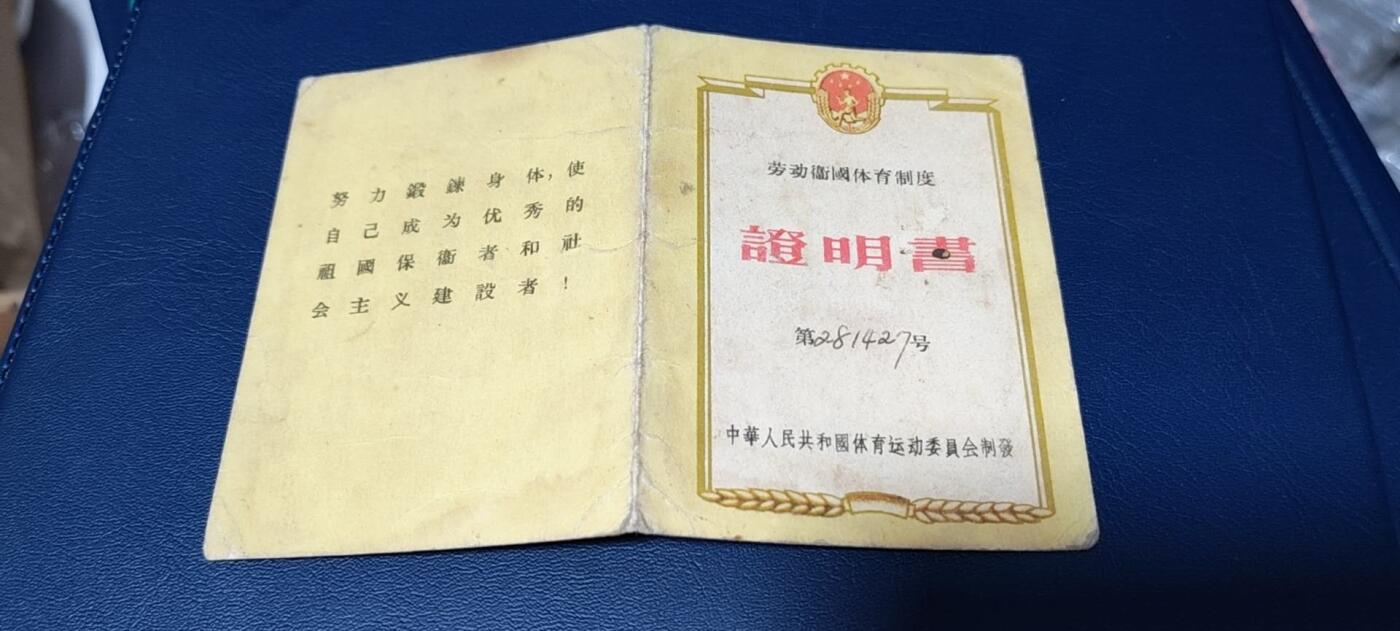 努力鍛鍊身体，使
自己成为优秀的
祖國保衞者和社
会主义建設者！
劳动衞國体育制度
證明書
第281427号
中華人民共和國体育运动委員会制發